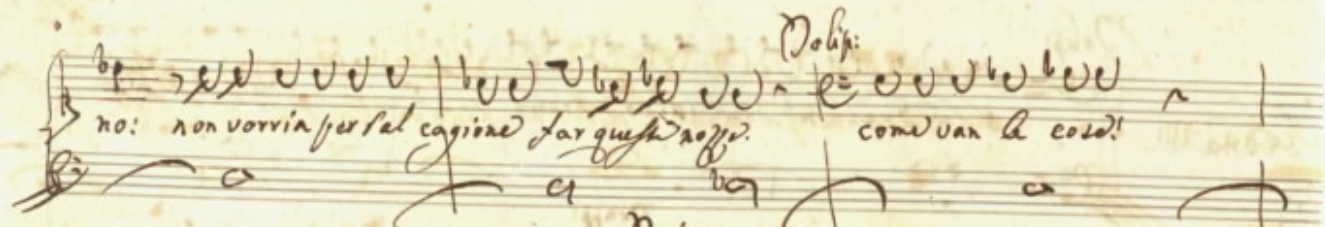 Polip:
no: non vorria per tal cagione far queste nozze. come van le cose!